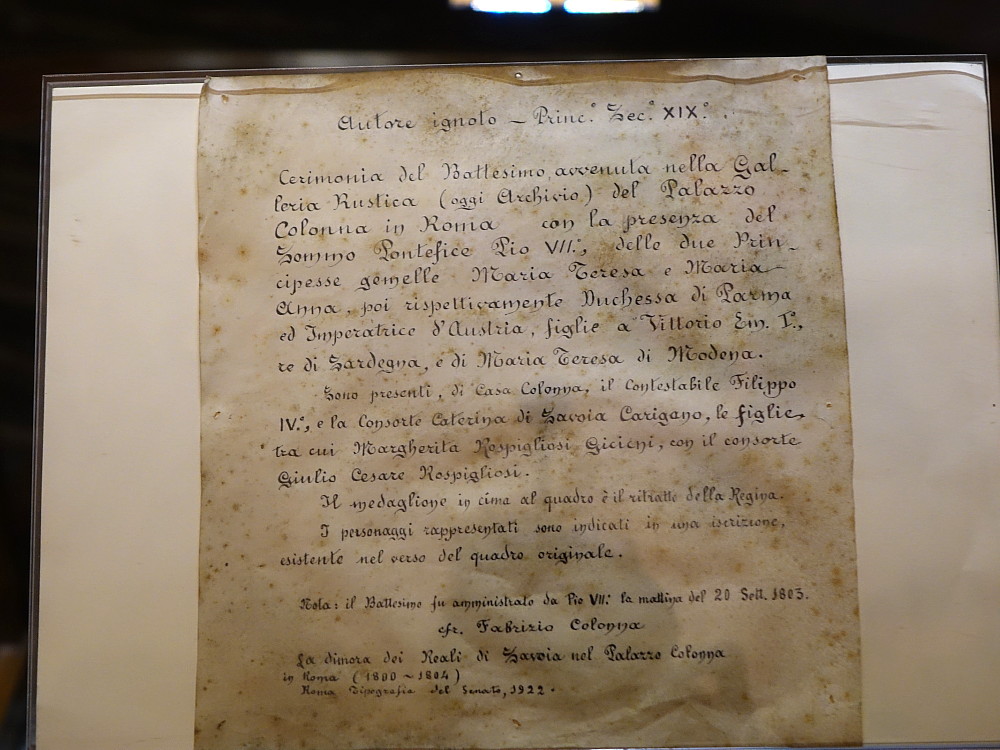 Autore ignoto – Princ.° Sec.° XIX.°.
Cerimonia del Battesimo, avvenuta nella Gal-
leria Rustica (oggi Archivio) del Palazzo
Colonna in Roma con la presenza del
Sommo Pontefice Pio VII.°, delle due Prin-
cipesse gemelle Maria Teresa e Maria
Anna, poi rispettivamente Duchessa di Parma
ed Imperatrice d'Austria, figlie a Vittorio Em. I.°,
re di Sardegna, e di Maria Teresa di Modena.
Sono presenti, di Casa Colonna, il Contestabile Filippo
IV.°, e la Consorte Caterina di Savoia Carigano, le figlie,
tra cui Margherita Rospigliosi Gicicni, con il consorte
Giulio Cesare Rospigliosi.
Il medaglione in cima al quadro è il ritratto della Regina.
I personaggi rappresentati sono indicati in una iscrizione,
esistente nel verso del quadro originale.
Nota: il Battesimo fu amministrato da Pio VII.° la mattina del 20 Sett. 1803.
cfr. Fabrizio Colonna
La dimora dei Reali di Savoia nel Palazzo Colonna
in Roma (1800 ~ 1804)
Roma Tipografia del Senato, 1922.